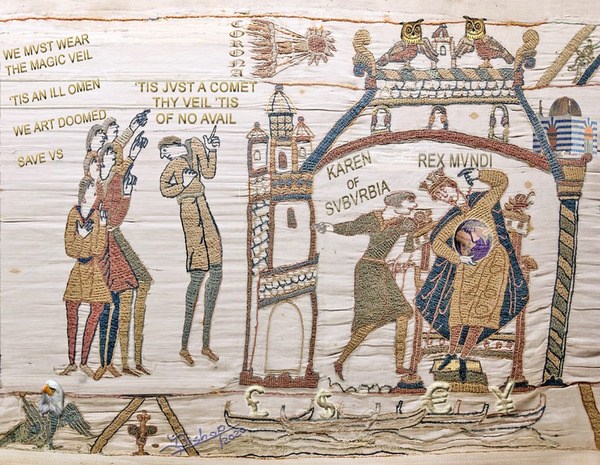 WE MVST WEAR
THE MAGIC VEIL
'TIS AN ILL OMEN
WE ART DOOMED
SAVE VS
'TIS JVST A COMET
THY VEIL 'TIS
OF NO AVAIL
KAREN
OF
SVBVRBIA
REX MVNDI
£ $ € ¥
2020